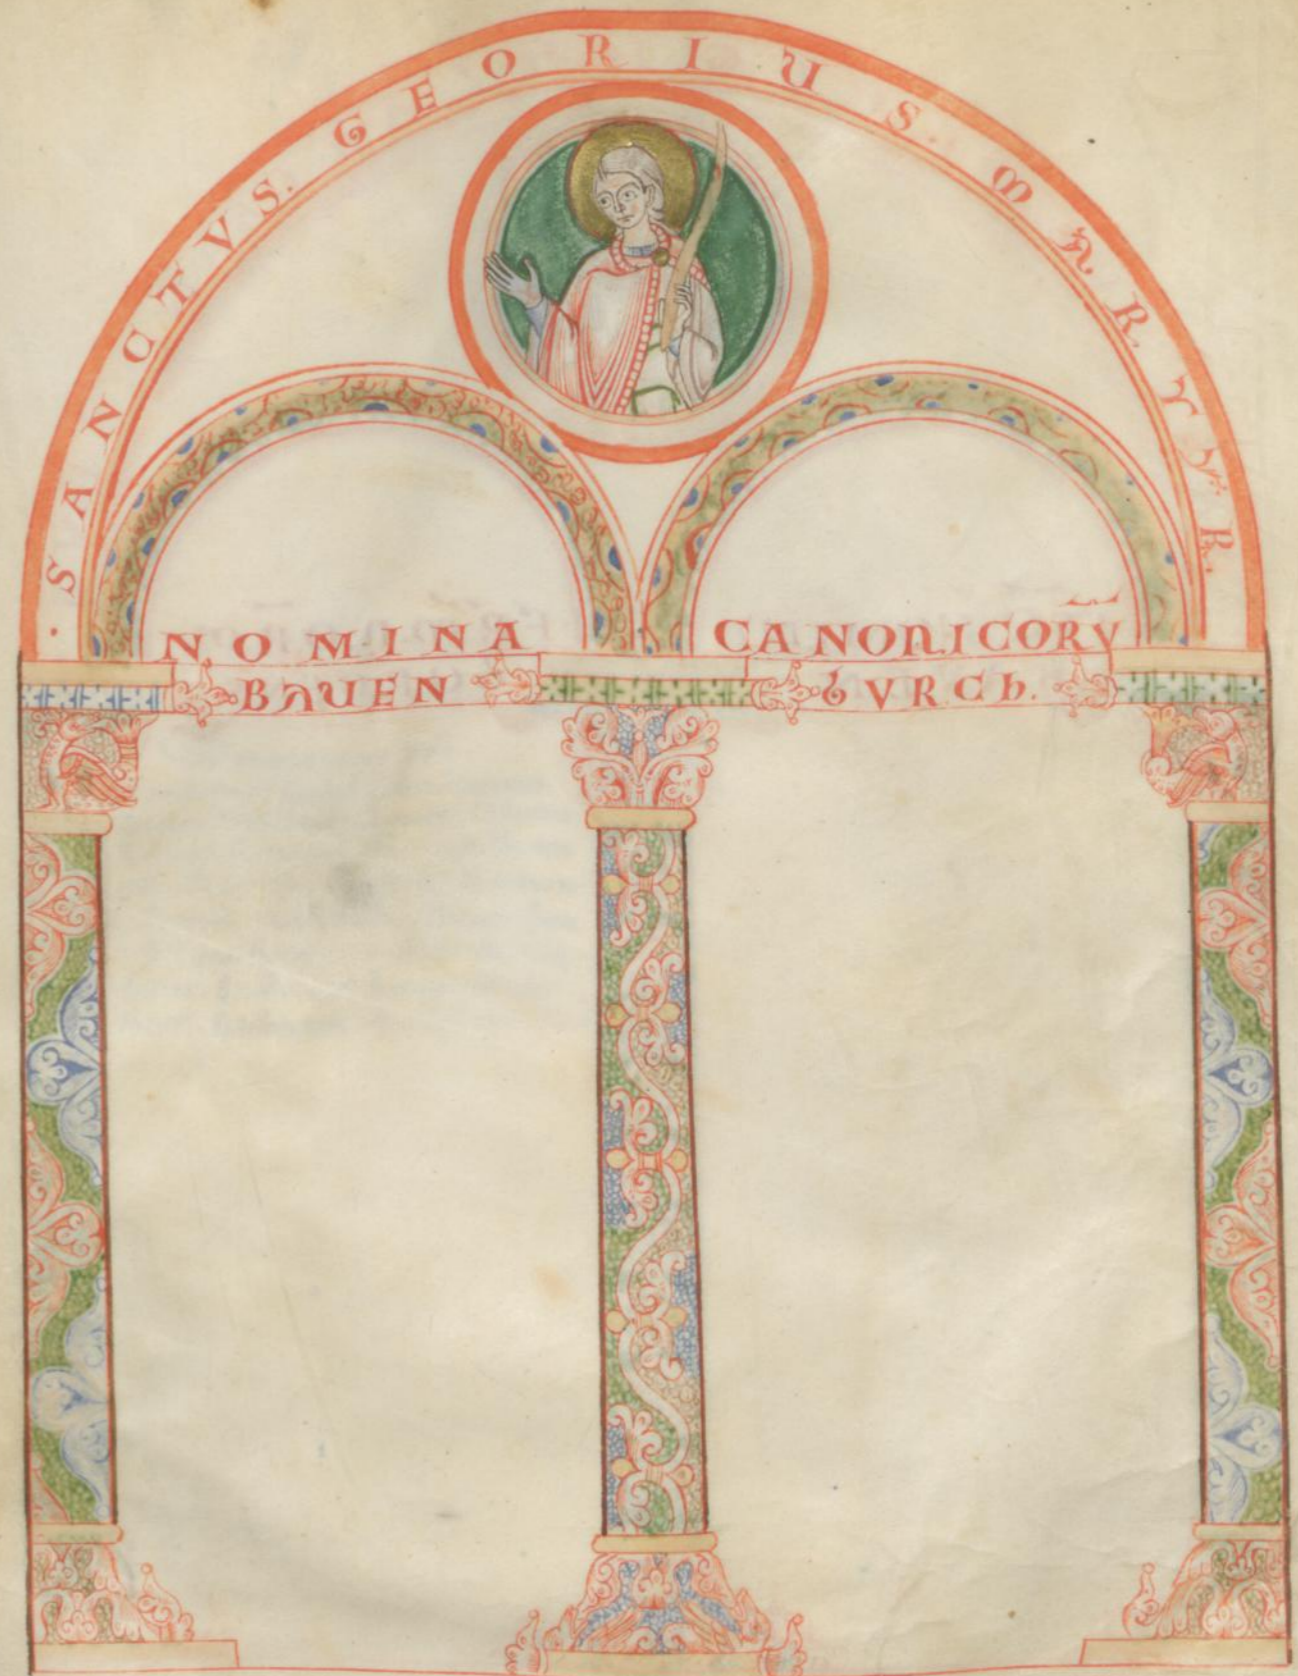 · SANCTVS. GEORIUS. MARTYR.
NOMINA CANONICORV̅
BAUEN bVRCh.